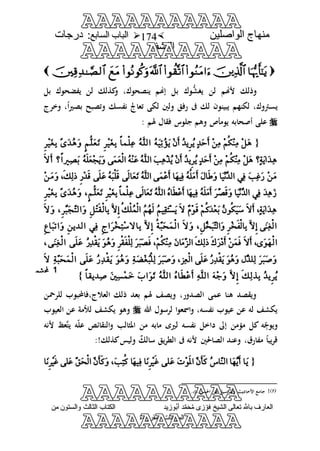 منهاج الواصلين
174
الباب السابع: درجات
وذلك لأنهم لن يغشوك بل إنهم ينصحوك، وكذلك لن يفضحوك بل
يستروك، لكنهم يبينون لك فى رفق ولين لكى تعالج نفسك وتصبح بصيراً، وخرج
على أصحابه يوماص وهم جلوس فقال لهم :
{ هَلْ مِنْكُمْ مِنْ أَحَدٍ يُرِيدُ أَنْ يُؤْتِيَهُ اللَّهُ عِلْماً بِغَيْرِ تَعَلُّمٍ وَهُدًى بِغَيْرِ
هِدَايَةٍ؟ هَلْ مِنْكُمْ مِنْ أَحَدٍ يُرِيدُ أَنْ يُذْهِبَ اللَّهُ عَنْهُ الْعَمَى وَيَجْعَلَهُ بَصِيراً؟ أَلاَ
مَنْ رَغِبَ فِي الدُّنْيَا وَطَالَ أَمَلُهُ فِيهَا أَعْمَى اللَّهُ تَعَالَى قَلْبَهُ عَلَى قَدْرِ ذَلِكَ، وَمَنْ
زَهِدَ فِي الدُّنْيَا وَقَصَرَ أَمَلَهُ فِيهَا أَعْطَاهُ اللَّهُ تَعَالَى عِلْماً بِغَيْرِ تَعَلُّمٍ، وَهُدًى بِغَيْرِ
هِدَايَةٍ، أَلاَ سَيَكُونُ بَعْدَكُمْ قَوْمٌ لاَ يَسْتَقِيمُ لَهُمُ الْمُلْكُ إِلاَّ بِالْقَتْلِ وَالتَّجَبُّرِ، وَلاَ
الْغِنَى إِلاَّ بِالْفَخْرِ وَالْبُخْلِ، وَلاَ الْمَحَبَّةُ إِلاَّ بِالاسْتِخْرَاجِ فِي الدينِ وَاتِّبَاعِ
الْهَوَى، أَلاَ فَمَنْ أَدْرَكَ ذَلِكَ الزَّمَانَ مِنْكُمْ، فَصَبَرَ لِلْفَقْرِ وَهُوَ يَقْدِرُ عَلَى الْغِنَى،
وَصَبَرَ لِلذُّلِّ وَهُوَ يَقْدِرُ عَلَى الْعِزِ، وَصَبَرَ لِلْبِغْضَةِ وَهُوَ يَقْدِرُ عَلَى الْمَحَبَّةِ لاَ
يُرِيدُ بِذَلِكَ إِلاَّ وَجْهَ اللَّهِ أَعْطَاهُ اللَّهُ ثَوَابَ خَمْسِينَ صِديقاً }
ويقصد هنا عمى الصدور، ويصف لهم بعد ذلك العلاج،فالمحبوب للرحمن
يكشف له عن عيوب نفسه، واسمعوا لرسول الله وهو يكشف للأمة عن العيوب
ويوجّه كل مؤمن إلى داخل نفسه ليرى مابه من المثالب والنقائص علّه يتّعظ لأنه
قريباً مفارق، وعند الصالحين لأنه فى الطريق سالكٌ وليس كذلك!:
{ يَا أَيُّهَا النَّاسُ كَأَنَّ الْمَوْتَ عَلَى غَيْرِنَا فِيهَا كُتِبَ، وَكَأَنَّ الْحَقَّ عَلَى غَيْرِنَا
العارف بالله تعالى الشيخ فوزى محمد أبوزيد
الكتاب الثالث والستون من